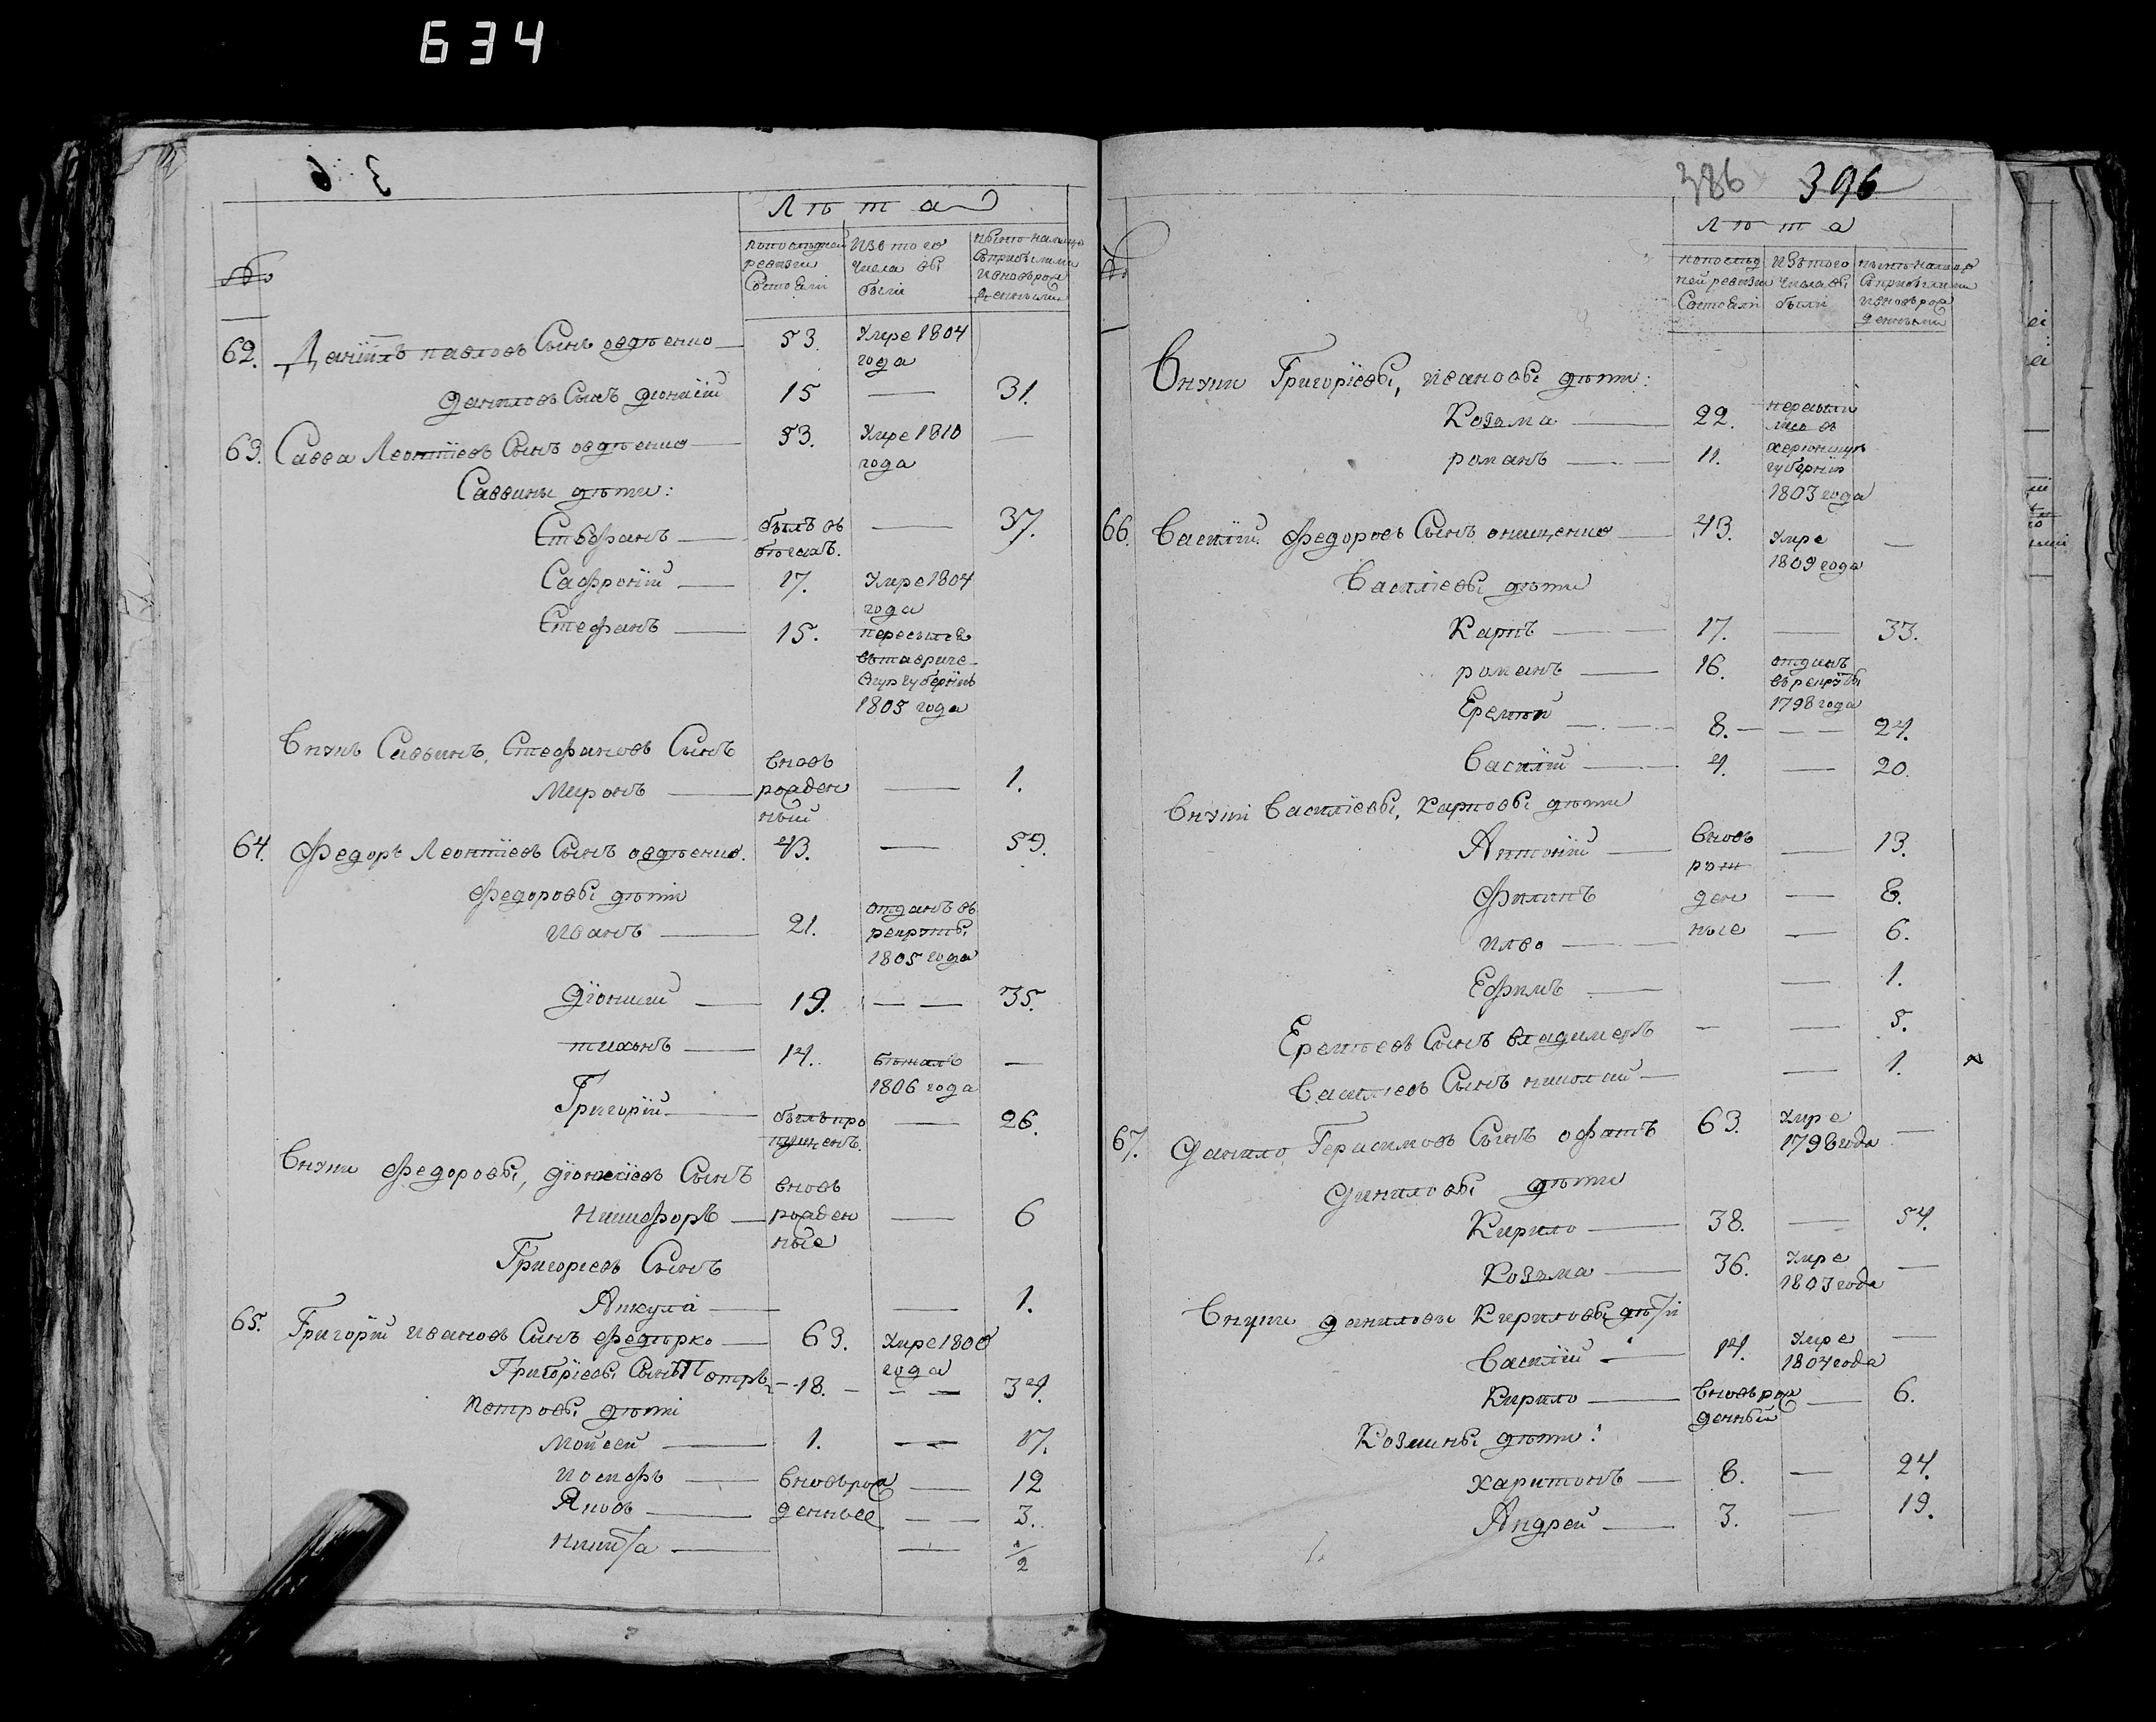 634
3 6
Лѣта
№
попослѣдней ревизiи Состояли
Изъ того числа вы были
нынѣ налицо съприбылыми ивновьрож денными
62. Данiилъ павловъ Сынъ овдѣенко — 53. Умре 1804 года
даниловъ Сынъ дiонисiй 15 — 31.
63. Савва Леонтiевъ Сынъ овдѣенко — 53. Умре 1810 года —
Саввины дѣти:
Стефанъ — былъ въ бѣгахъ. — 37.
Сафронiй — 17. Умре 1804 года
Стефанъ — 15. пересылся втавриче- скую губернiю 1805 года
Внукъ Саввинъ, Стефановъ Сынъ
Миронъ — вновь рожден ный — 1.
64. Федоръ Леонтiевъ Сынъ овдѣенко. 43. — 59.
Федоровы дѣти
иванъ — 21. отданъ въ рекруты 1805 года
дiонисiй — 19. — — 35.
тихонъ — 14. бѣжалъ 1806 года —
Григорiй — былъ про пущенъ. — 26.
Внуки Федоровы, дiонисiевъ Сынъ
Никифоръ — вновь рожден ные — 6
Григориевъ Сынъ
Акула — — 1.
65. Григорiй ивановъ Сынъ Федорко — 69. Умре 1800 года
Григорiевъ Сынъ Петръ — 18. — — — 34.
Петровы дѣти
Мойсей — 1. — 17.
иосифъ — вновьрож — 12
Яковъ — денные — — 3.
Никита — — 1/2
386 396
Лѣта
№
попослѣд ней ревизiи Состояли
Изътого числа вы были
нынѣ налицо Съприбылыми ивновьрож денными
Внуки Григорiевы, ивановы дѣти:
Козьма — 22. перешли
романъ — — 11. херсонскую губернiю 1803 года
66. Василiй Федоровъ Сынъ онищенко — 43. Умре 1809 года —
Василiевы дѣти
Карпъ — — 17. — 33.
романъ — 16. отданъ въ рекруты 1798 года
Еремѣй — — 8. — — — 24.
Василiй — 4. — 20.
Внуки Василiевы, Карповы дѣти
Антонiй — Вновь — 13.
рож
Филипъ ден — 8.
илво — — ные — 6.
Ефимъ — — 1.
Еремѣевъ Сынъ владимеръ — — 5.
Василiевъ Сынъ николай — — 1.
67. Данило Герасимовъ Сынъ офатъ 63. Умре 1798 года —
Даниловы дѣти
Кирило — 38. — 54.
Козьма — 36. Умре 1803 года —
Внуки даниловы Кириловы дѣти
Василiй — 14. Умре 1804 года —
Кирило — вновьрож денный — 6.
Козмины дѣти:
харитонъ — 8. — 24.
Андрей — 3. — 19.